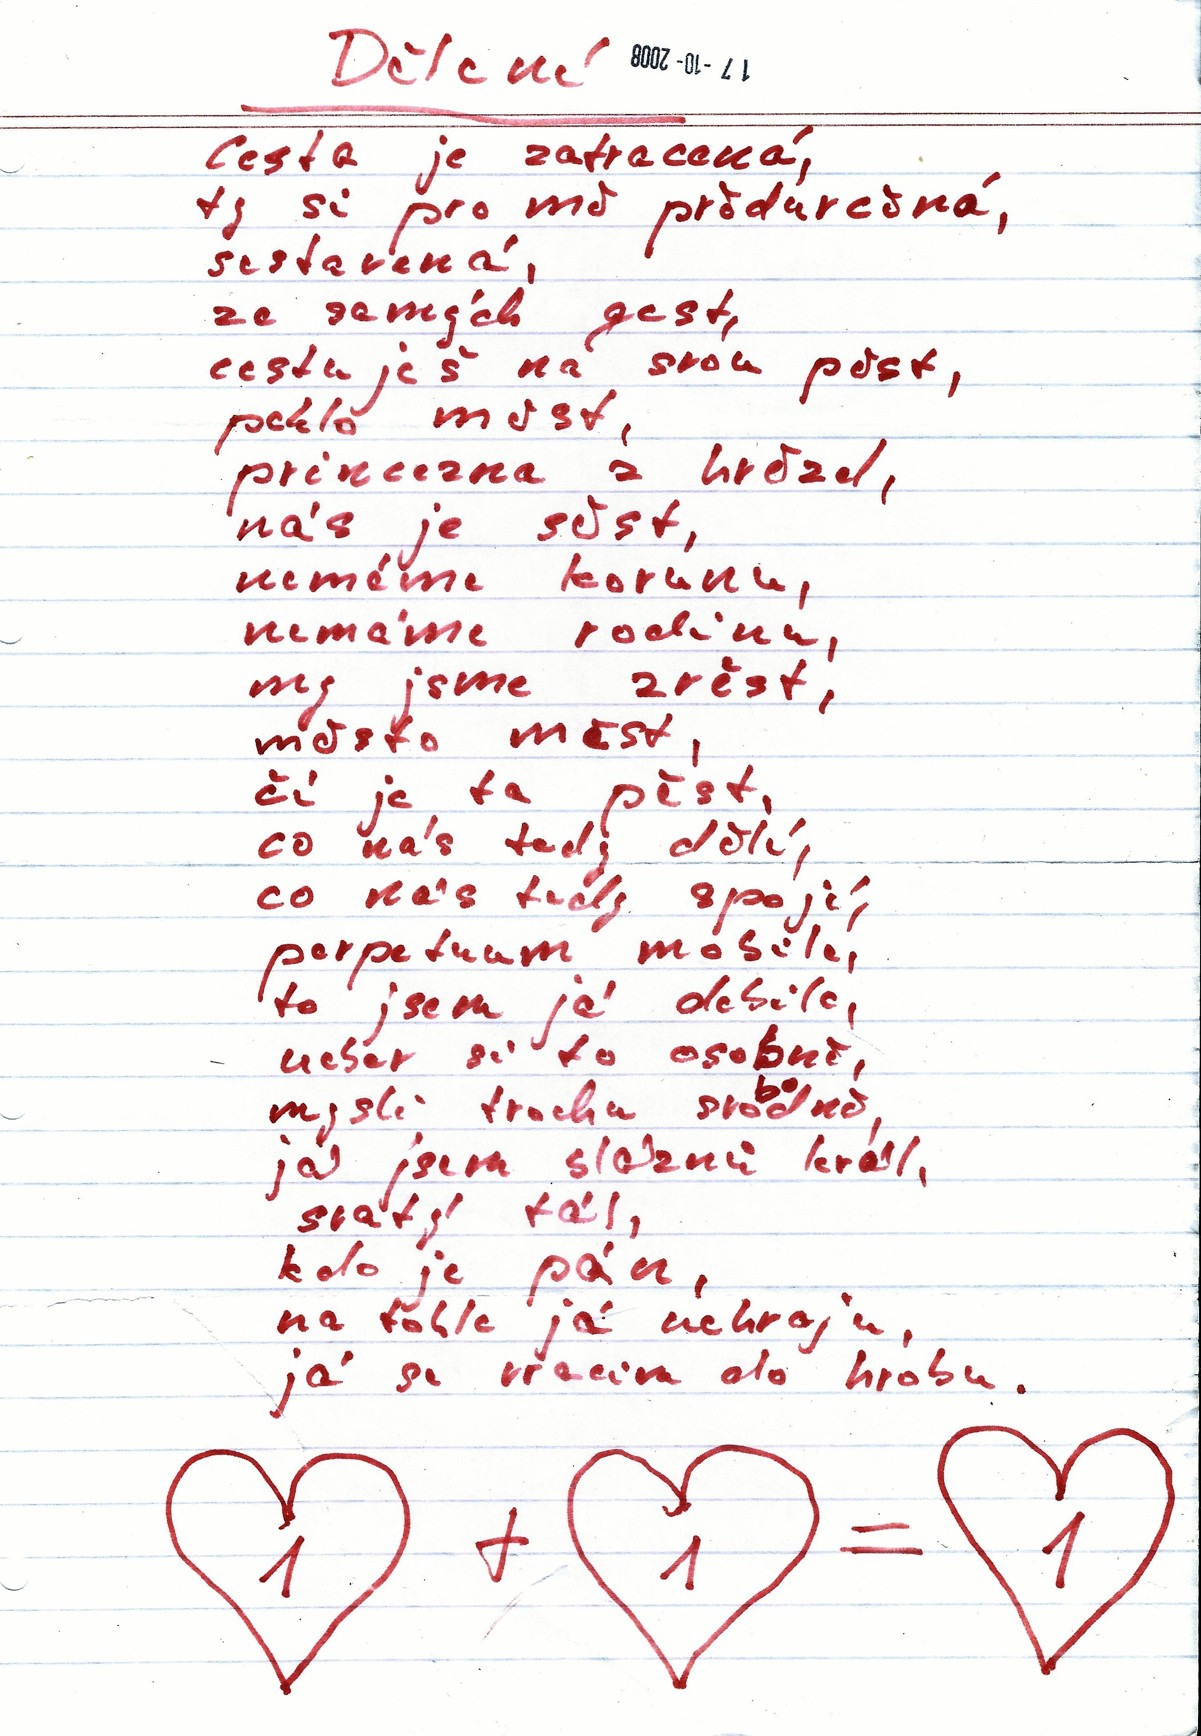 Dělení
17-10-2008
Cesta je zatracená,
ty si pro mě předurčená,
sestavená,
ze samých gest,
cestuješ na svou pěst,
peklo měst,
princezna z hvězd,
nás je šest,
nemáme korunu,
nemáme rodinu,
my jsme zvěst,
město měst,
čí je ta pěst,
co nás tady dělí,
co nás tady spojí,
perpetuum mobile,
to jsem já debile,
neber si to osobně,
mysli trochu svobodně,
já jsem bláznů král,
svatý tál,
kdo je pán,
na tohle já nehraju,
já se vracím do hrobu.
1 + 1 = 1